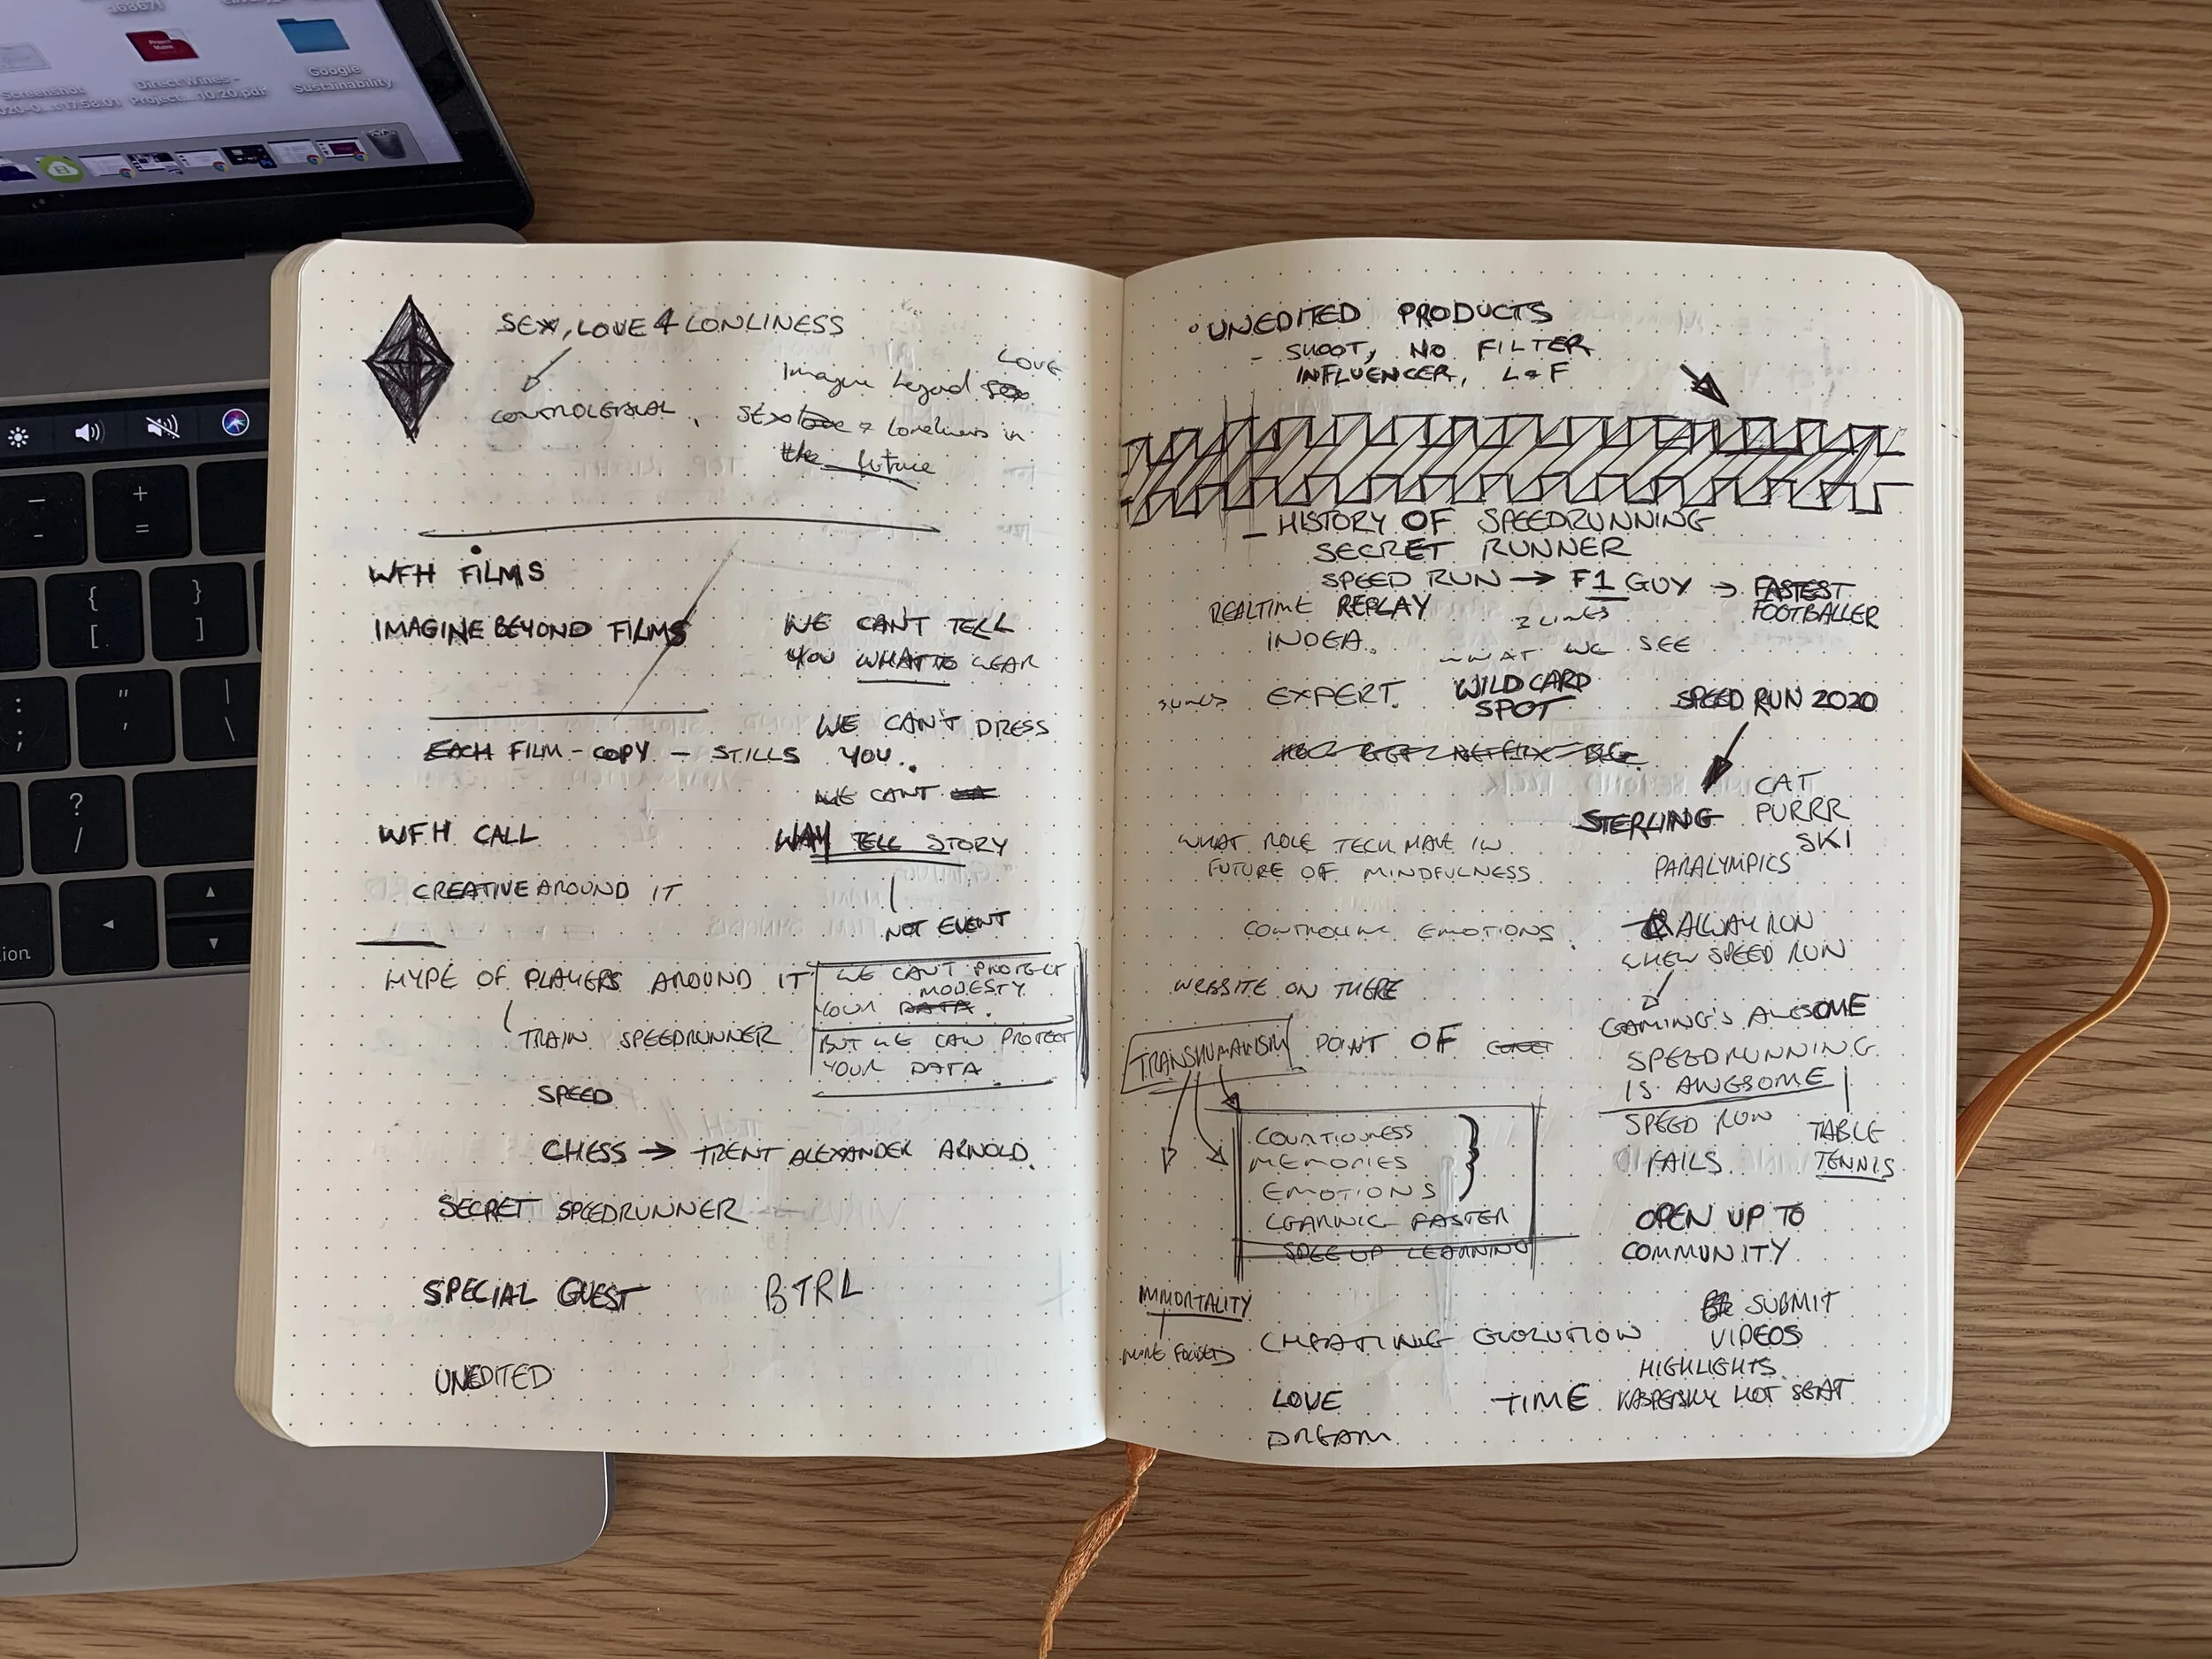 Screenshot
Direct Wines -
Project...10.20.pdf
Google
Sustainability
SEX, LOVE & LONLINESS
LOVE
Imagine beyond
loneliness in
the future
WFH FILMS
IMAGINE BEYOND FILMS
WE CAN'T TELL
YOU WHAT TO WEAR
WE CAN'T DRESS
YOU.
EACH FILM - COPY - STILLS
WE CANT
WFH CALL
WAY TELL STORY
CREATIVE AROUND IT
NOT EVENT
HYPE OF PLAYERS AROUND IT
WE CAN'T PROTECT
MODESTY
YOUR DATA.
BUT WE CAN PROTECT
YOUR DATA
TRAIN SPEEDRUNNER
SPEED
CHESS → TRENT ALEXANDER ARNOLD.
SECRET SPEEDRUNNER
SPECIAL GUEST BTRL
UNEDITED
UNEDITED PRODUCTS
- SHOOT, NO FILTER
INFLUENCER, L&F
- HISTORY OF SPEEDRUNNING
SECRET RUNNER
SPEED RUN → F1 GUY → FASTEST
FOOTBALLER
REALTIME REPLAY
INDEA.
WHAT WE SEE
EXPERT. WILDCARD
SPOT
SPEED RUN 2020
CAT
PURRR
SKI
STERLING
PARALYMPICS
WHAT ROLE TECH HAVE IN
FUTURE OF MINDFULNESS
ALWAY RUN
WHEN SPEED RUN
CONTROLING EMOTIONS.
WEBSITE ON THERE
GAMING'S AWESOME
SPEEDRUNNING
IS AWESOME
TRANSHUMANISM POINT OF
SPEED RUN
FAILS.
TABLE
TENNIS
MEMORIES
EMOTIONS
LEARNING FASTER
SPEE UP LEARNING
OPEN UP TO
COMMUNITY
IMMORTALITY
MORE FOCUSED
CHEATING EVOLUTION
SUBMIT
VIDEOS
HIGHLIGHTS
KASPERSKY HOT SEAT
LOVE
TIME
DREAM